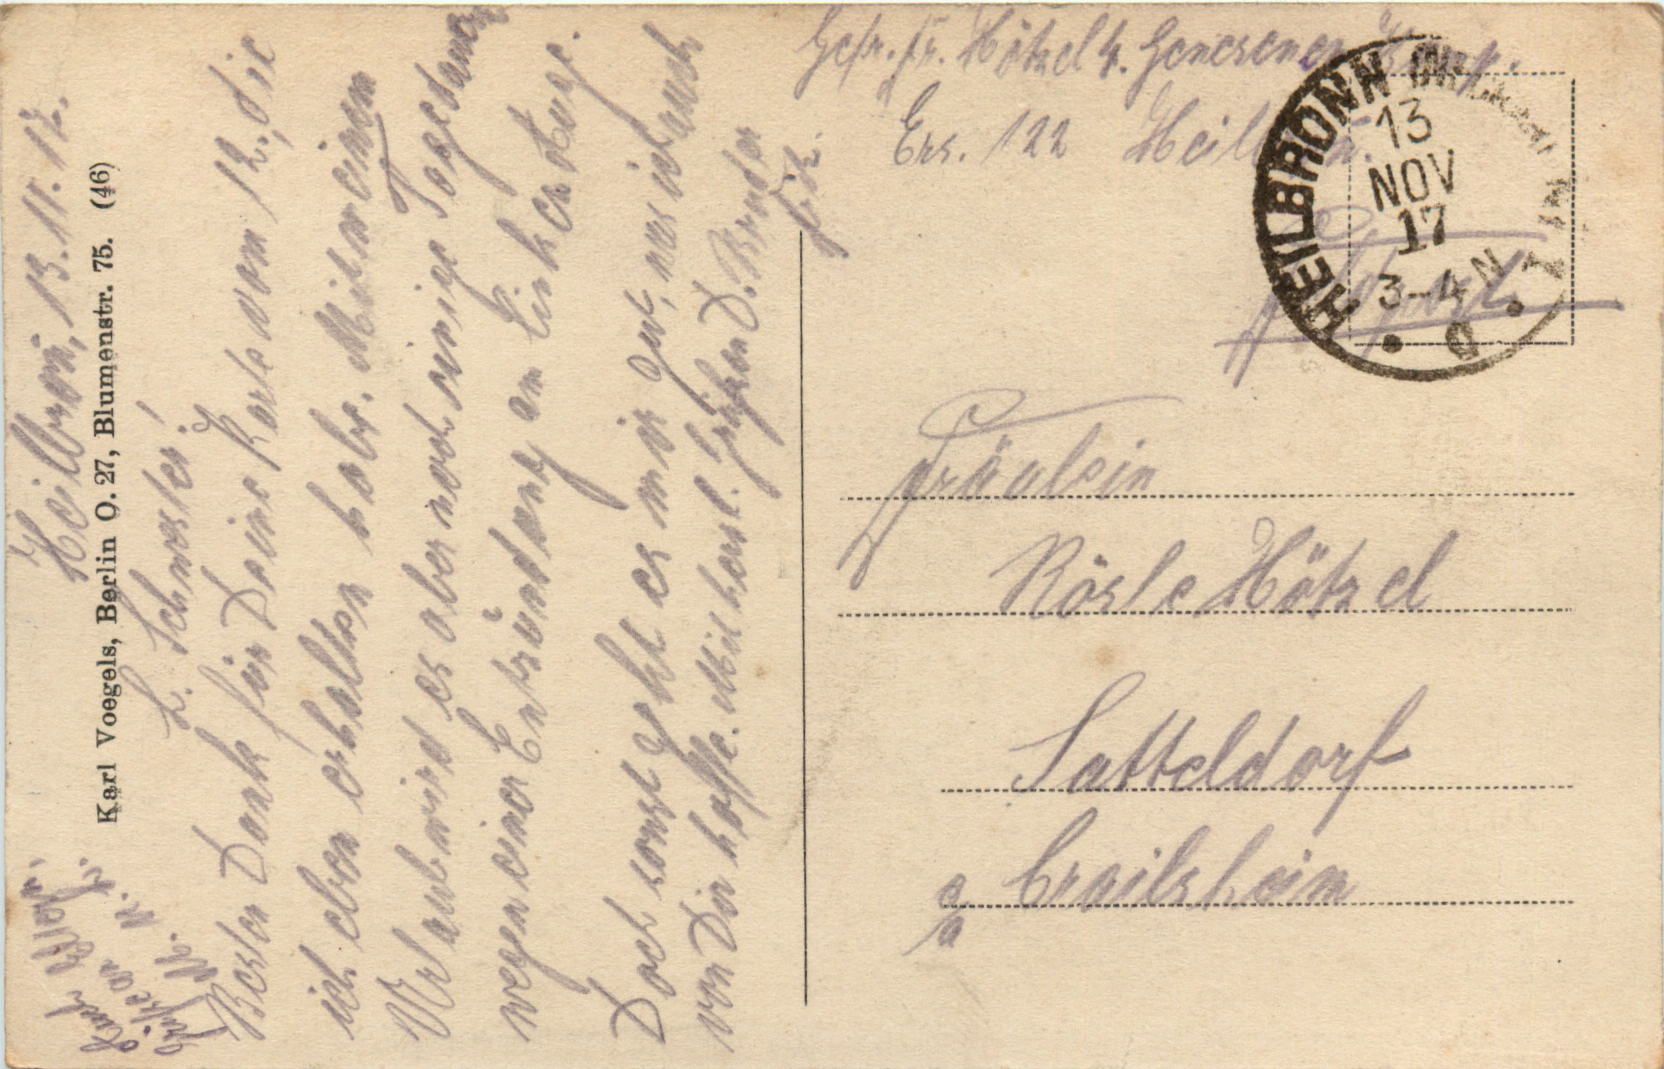 Heilbronn, 13.11.17.
L. Schwester!
Besten Dank für Deine Karte vom 12., die
ich eben erhalten habe. Mit meinem
Urlaub wird es aber noch einige Tage dauern
wegen einer Entzündung am linken Auge.
Doch sonst geht es mir gut, was ich auch
von Dir hoffe. Mit herzl. Grüßen D. Bruder
Fritz.
Karl Voegels, Berlin O. 27, Blumenstr. 75. (46)
Gefr. Fr. Hötzel 4. Genesenen Komp.
Ers. 122 Heilbronn.
HEILBRONN
13
NOV
17
3-4 N
Fräulein
Rösle Hötzel
Satteldorf
Crailsheim